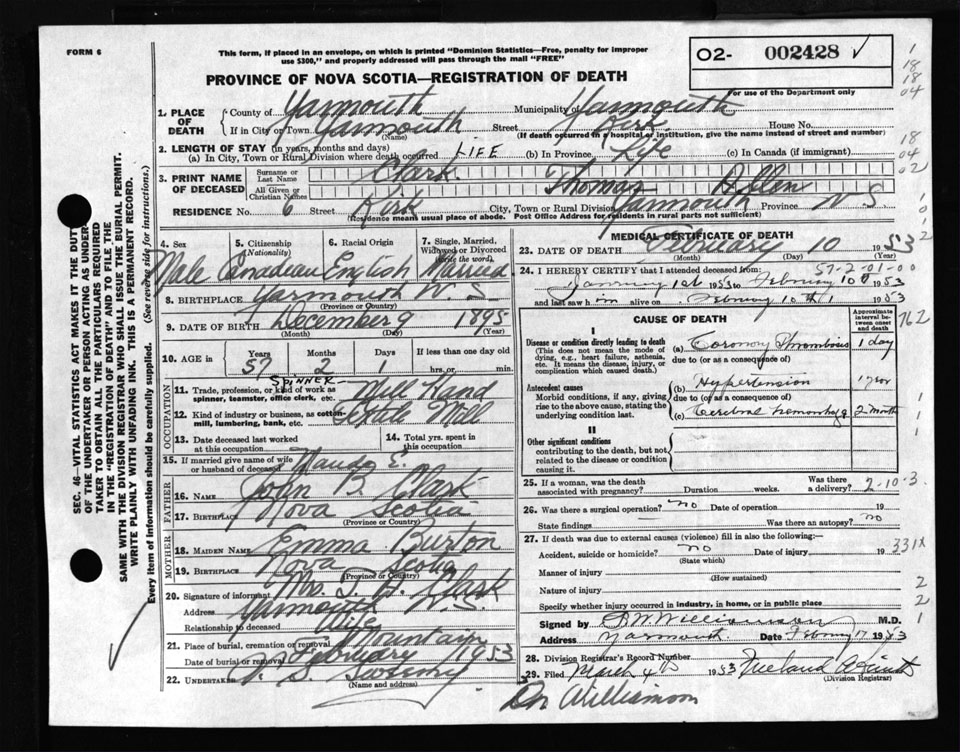 FORM 6
This form, if placed in an envelope, on which is printed "Dominion Statistics—Free, penalty for improper
use $300," and properly addressed will pass through the mail "FREE"
02- 002428 ✓
For use of the Department only
PROVINCE OF NOVA SCOTIA—REGISTRATION OF DEATH
1. PLACE OF DEATH
County of Yarmouth Municipality of Yarmouth
If in City or Town Yarmouth Street Kirk House No.
(Name) (If death occurred in a hospital or institution, give the name instead of street and number)
2. LENGTH OF STAY (in years, months and days)
(a) In City, Town or Rural Division where death occurred LIFE (b) In Province Life (c) In Canada (if immigrant)
3. PRINT NAME OF DECEASED
Surname or Last Name Clark.
All Given or Christian Names Thomas Allen
RESIDENCE No. 6 Street Kirk City, Town or Rural Division Yarmouth Province N S
(Residence means usual place of abode. Post Office Address for residents in rural parts not sufficient)
SEC. 46—VITAL STATISTICS ACT MAKES IT THE DUTY
OF THE UNDERTAKER OR PERSON ACTING AS UNDER-
TAKER TO OBTAIN ALL THE PARTICULARS REQUIRED
IN THE "REGISTRATION OF DEATH" AND TO FILE THE
SAME WITH THE DIVISION REGISTRAR WHO SHALL ISSUE THE BURIAL PERMIT.
WRITE PLAINLY WITH UNFADING INK. THIS IS A PERMANENT RECORD.
Every item of information should be carefully supplied. (See reverse side for instructions.)
4. Sex Male
5. Citizenship (Nationality) Canadian
6. Racial Origin English
7. Single, Married, Widowed or Divorced (write the word) Married
8. BIRTHPLACE Yarmouth N S
(Province or Country)
9. DATE OF BIRTH December 9 1895
(Month) (Day) (Year)
10. AGE in Years 57 Months 2 Days 1 If less than one day old hrs. or min.
OCCUPATION
11. Trade, profession, or kind of work as spinner, teamster, office clerk, etc. SPINNER- Mill Hand
12. Kind of industry or business, as cotton-mill, lumbering, bank, etc. Textile Mill
13. Date deceased last worked at this occupation
14. Total yrs. spent in this occupation
15. If married give name of wife or husband of deceased Maude E.
FATHER
16. NAME John B. Clark
17. BIRTHPLACE Nova Scotia
(Province or Country)
MOTHER
18. MAIDEN NAME Emma Burton
19. BIRTHPLACE Nova Scotia
(Province or Country)
20. Signature of informant Mrs. T. A. Clark
Address Yarmouth N.S.
Relationship to deceased Wife
21. Place of burial, cremation or removal Mountain
Date of burial or removal February 1953
22. UNDERTAKER
(Name and address)
MEDICAL CERTIFICATE OF DEATH
23. DATE OF DEATH February 10 1953
(Month) (Day)
57-2-01-00
24. I HEREBY CERTIFY that I attended deceased from
January 1st 1953 to February 10th 1953
and last saw him alive on February 10th 1953
CAUSE OF DEATH
Approximate interval between onset and death
I
Disease or condition directly leading to death
(This does not mean the mode of dying, e.g., heart failure, asthenia, etc. It means the disease, injury, or complication which caused death.)
(a) Coronary Thrombosis 1 day
due to (or as a consequence of)
Antecedent causes
Morbid conditions, if any, giving rise to the above cause, stating the underlying condition last.
(b) Hypertension 1 year
due to (or as a consequence of)
(c) Cerebral hemorrhage 2 month
II
Other significant conditions
contributing to the death, but not related to the disease or condition causing it.
25. If a woman, was the death associated with pregnancy? Duration weeks. Was there a delivery? 2-10-3.
26. Was there a surgical operation? no Date of operation 19
State findings Was there an autopsy? no
27. If death was due to external causes (violence) fill in also the following:—
Accident, suicide or homicide? no Date of injury 19 331X
(State which)
Manner of injury
(How sustained)
Nature of injury
Specify whether injury occurred in industry, in home, or in public place
Signed by Williamson M.D.
Address Yarmouth. Date February 17 1953
28. Division Registrar's Record Number
29. Filed March 4th 1953
(Division Registrar)
Williamson
1
18
18
04
18
04
02
1
0
1
2
762
1
1
1
2
2
1